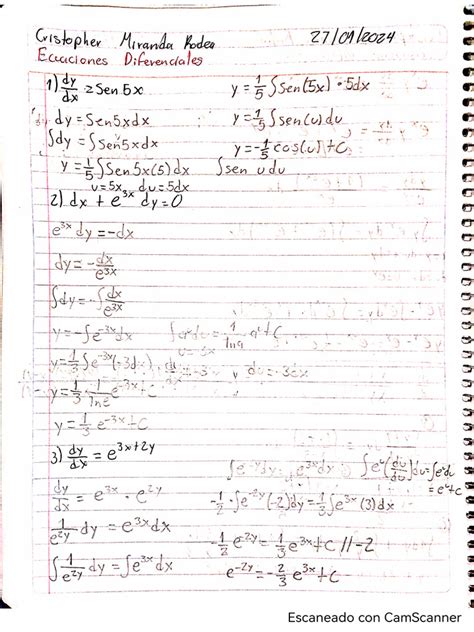 Cristopher Miranda Rodea 27/01/2024
Ecuaciones Diferenciales
1) dy/dx = Sen 5x
dy = Sen5xdx
∫dy = ∫Sen5xdx
y = 1/5 ∫Sen5x(5)dx
u=5x, du=5dx
y = 1/5 ∫Sen(5x) • 5dx
y = 1/5 ∫Sen(u)du
y = -1/5 cos(u)+C
∫sen u du
2) dx + e^3x dy = 0
e^3x dy = -dx
dy = -dx/e^3x
∫dy = -∫dx/e^3x
y = -∫e^-3x dx
y = 1/3 ∫e^-3x(-3dx)
y = 1/3 • 1/ln e e^-3x + C
y = 1/3 e^-3x + C
du = -3dx
3) dy/dx = e^3x+2y
dy/dx = e^3x • e^2y
1/e^2y dy = e^3x dx
∫1/e^2y dy = ∫e^3x dx
∫e^-2y dy = ∫e^3x dx
-1/2 • ∫e^-2y(-2)dy = 1/3 ∫e^3x(3)dx
-1/2 e^-2y = 1/3 e^3x + C // -2
e^-2y = -2/3 e^3x + C
∫e^u(du/du)du = ∫e^u du
= e^u + C
Escaneado con CamScanner